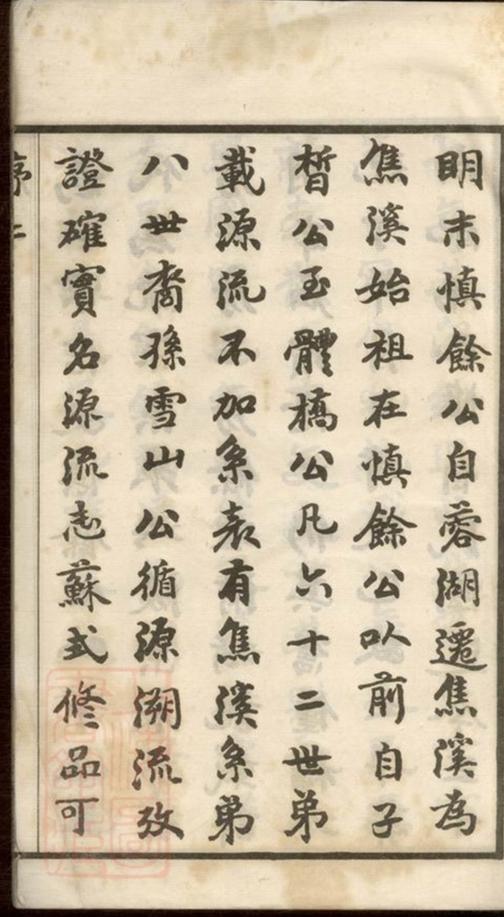 明末慎餘公自蓉湖遷焦溪為
焦溪始祖在慎餘公㕥前自子
晳公至體橋公凡六十二世弟
載源流不加系表有焦溪系弟
八世裔孫雪山公循源溯流攷
證確實名源流志蘇式修品可
序二